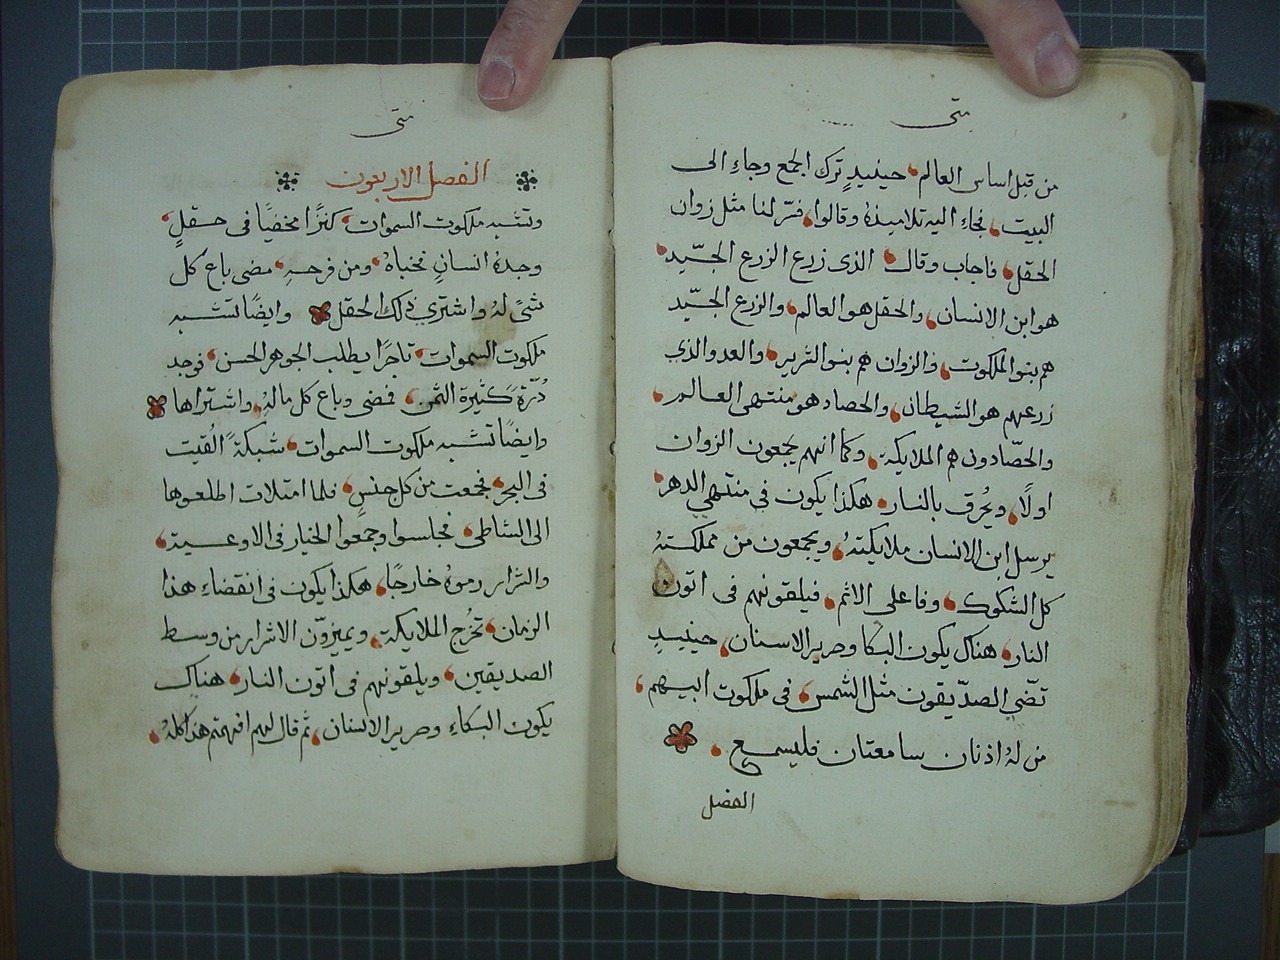 متى
من قبل اساس العالم، حينيدٍ ترك الجمع وجاءِ الى
البيت، فجاءِ اليه تلاميذهُ وقالوا، فسّر لنا مثل زوان
الحقل، فاجاب وقال، الذى زرع الزرع الجيّيد،
هو ابن الانسان، والحقل هو العالم، والزرع الجيّد
هم بنوا الملكوت، والزوان هم بنو الشرير، والعدو الذي
زرعهم هو الشيطان، والحصاد هو منتهى العالم،
والحصّادون هم الملايكة، وكما انهم يجمعون الزوان
اولًا، ويُحرق بالنار، هكذا يكون في منتهي الدهر،
يرسل ابن الانسان ملايكتهُ، ويجمعون من مملكتهُ
كل الشكوك، وفاعلى الاثم، فيلقونهم فى اتون
النار، هناك يكون البكا وصرير الاسنان، حينيدٍ
تضّي الصدّيقون مثل الشمس، فى ملكوت ابيهم،
من لهُ اذنان سامعتان فليسمع،
الفصل
متى
الفصل الاربعون
وتشبه ملكوت السموات، كنزًا مخفيًا فى حقلٍ،
وجدهُ انسانٍ فخباهُ، ومن فرحهِ، مضى باع كل
شىً لهُ واشترى ذلك الحقل، وايضًا تشبه
ملكوت السموات، تاجرًا يطلب الجوهر الحسن، فوجد
دُرّةً كثيرة الثمن، فمضى وباع كل مالهُ، واشتراها
وايضًا تشبه ملكوت السموات، شبكةً اُلقيت
فى البحر، فجمعت من كل جنسٍ، فلما امتلات اطلعوها
الى الشاطى، فجلسوا وجمعوا الخيار فى الاوعية،
والشرار رموهُ خارجًا، هكذا يكون فى انقضاءِ هذا
الزمان، تخرُج الملايكة، ويميزوّن الاشرار من وسط
الصديقين، ويلقونهم فى اتون النار، هناك
يكون البكاءِ وصرير الاسنان، ثم قال لهم افهمتم هذا كلهُ،